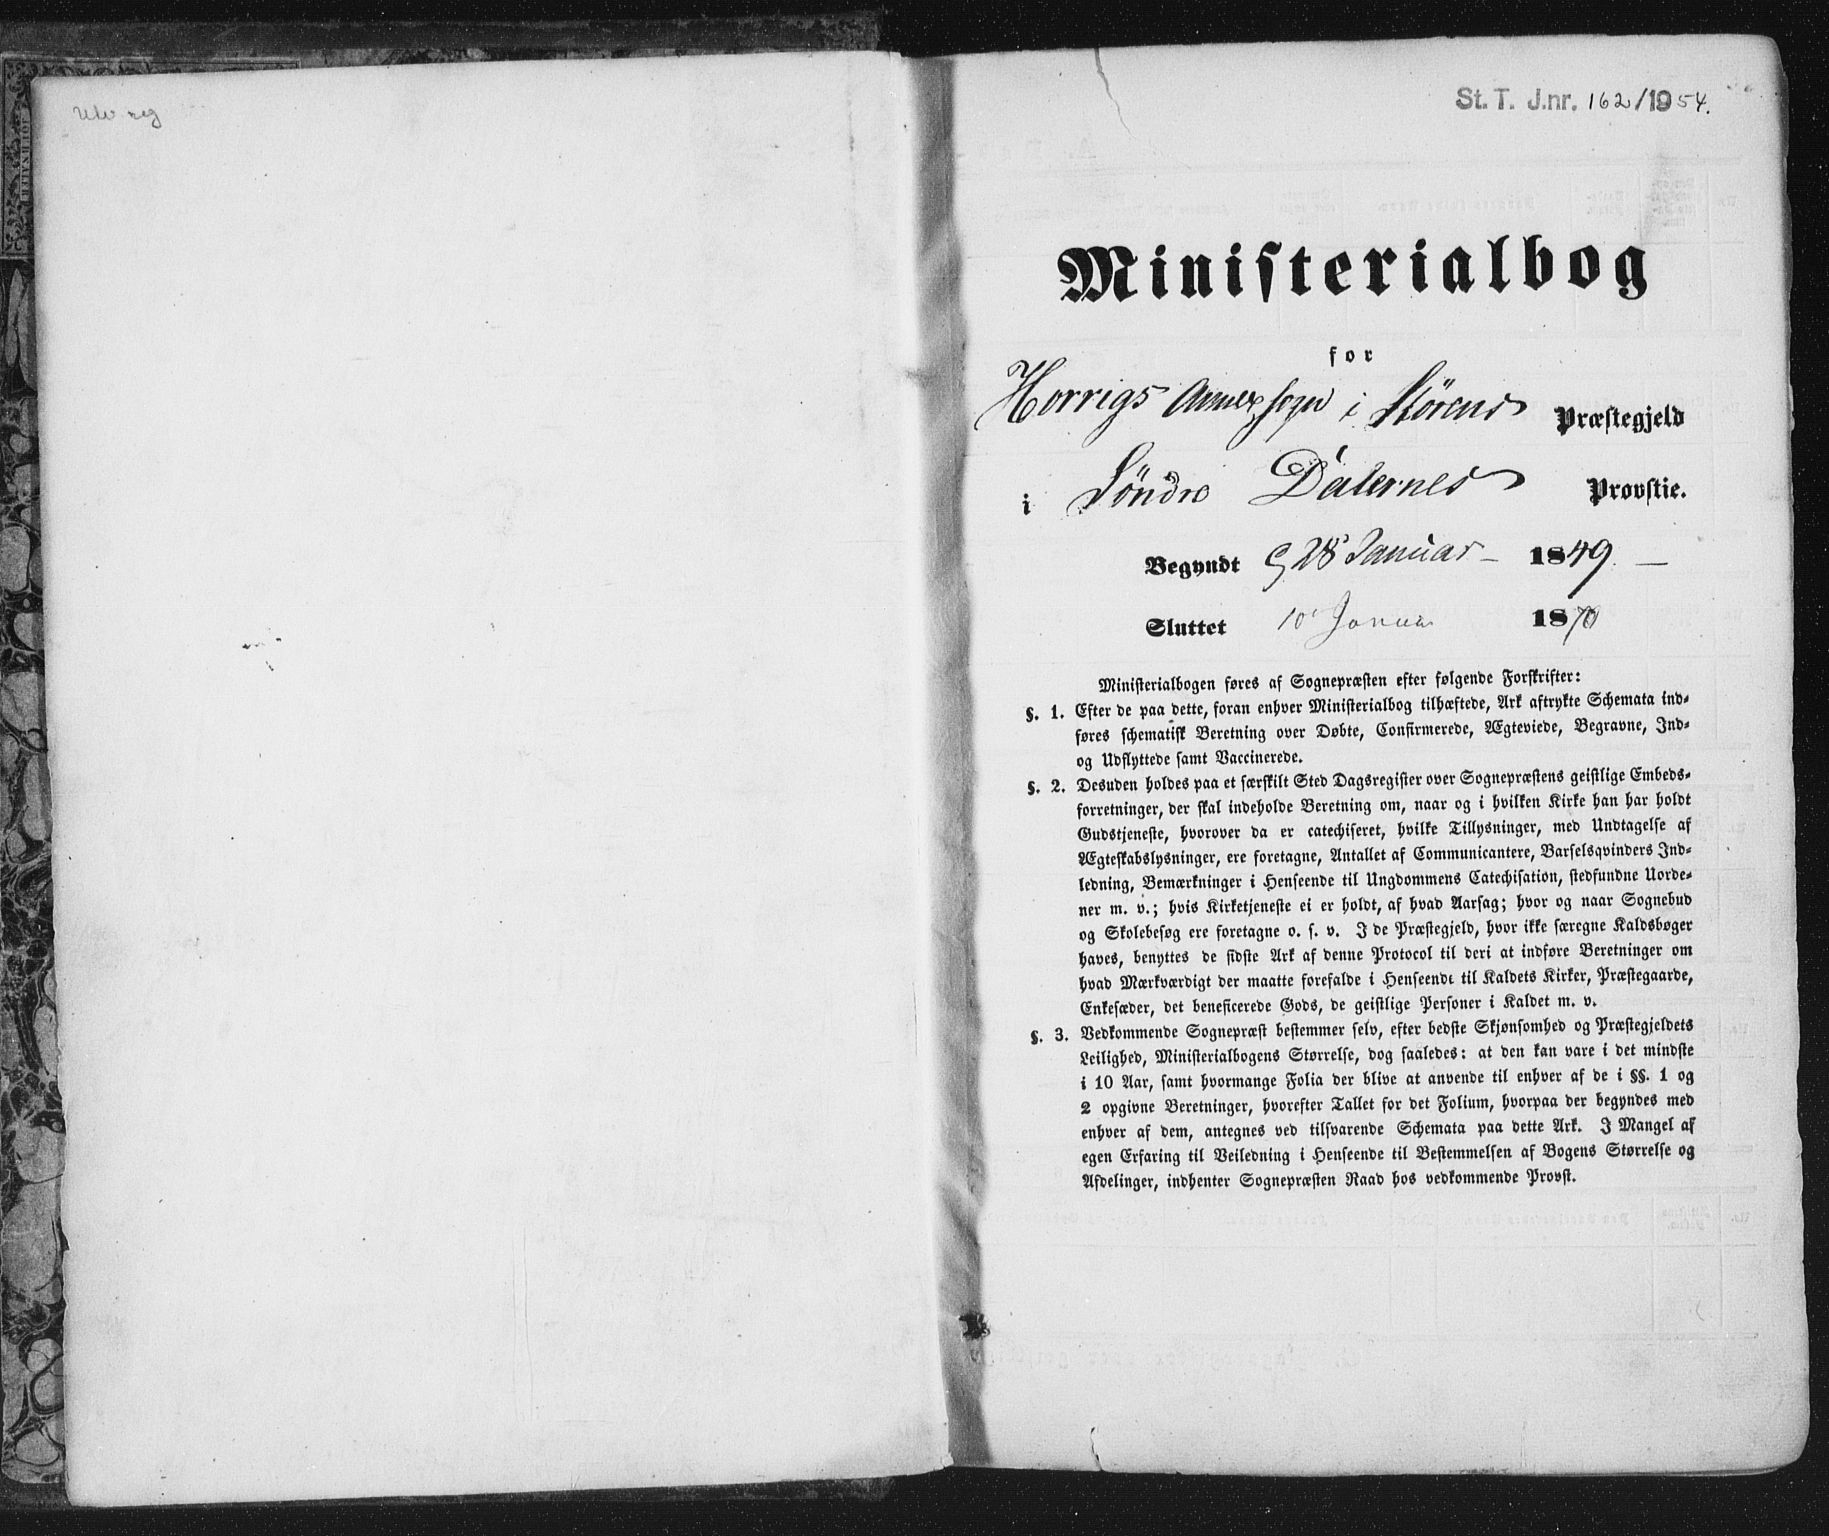 Utv reg
St. T. J.nr. 162/1954.
Ministerialbog
for
Horrigs Annex Sogn i Størens Præstegjeld
i Søndre Dalernes Provstie.
Begyndt d 28 Januar - 1849. —
Sluttet 10 Januar 1870
Ministerialbogen føres af Sognepræsten efter følgende Forskrifter:
§. 1. Efter de paa dette, foran enhver Ministerialbog tilhæftede, Ark aftrykte Schemata ind-
føres schematisk Beretning over Døbte, Confirmerede, Ægteviede, Begravne, Ind-
og Udflyttede samt Vaccinerede.
§. 2. Desuden holdes paa et særskilt Sted Dagsregister over Sognepræstens geistlige Embeds-
forretninger, der skal indeholde Beretning om, naar og i hvilken Kirke han har holdt
Gudstjeneste, hvorover da er catechiseret, hvilke Tillysninger, med Undtagelse af
Ægteskabslysninger, ere foretagne, Antallet af Communicantere, Barselqvinders Ind-
ledning, Bemærkninger i Henseende til Ungdommens Catechisation, stedfundne Uorde-
ner m. v.; hvis Kirketjeneste ei er holdt, af hvad Aarsag; hvor og naar Sognebud
og Skolebesøg ere foretagne o. s. v. I de Præstegjeld, hvor ikke særegne Kaldsbøger
haves, benyttes de sidste Ark af denne Protocol til deri at indføre Beretninger om
hvad Mærkværdigt der maatte forefalde i Henseende til Kaldets Kirker, Præstegaarde,
Enkesæder, det beneficerede Gods, de geistlige Personer i Kaldet m. v.
§. 3. Vedkommende Sognepræst bestemmer selv, efter bedste Skjønsomhed og Præstegjeldets
Leilighed, Ministerialbogens Størrelse, dog saaledes: at den kan vare i det mindste
i 10 Aar, samt hvormange Folia der blive at anvende til enhver af de i §§. 1 og
2 opgivne Beretninger, hvorefter Tallet for det Folium, hvorpaa der begyndes med
enhver af dem, antegnes ved tilsvarende Schemata paa dette Ark. I Mangel af
egen Erfaring til Veiledning i Henseende til Bestemmelsen af Bogens Størrelse og
Afdelinger, indhenter Sognepræsten Raad hos vedkommende Provst.